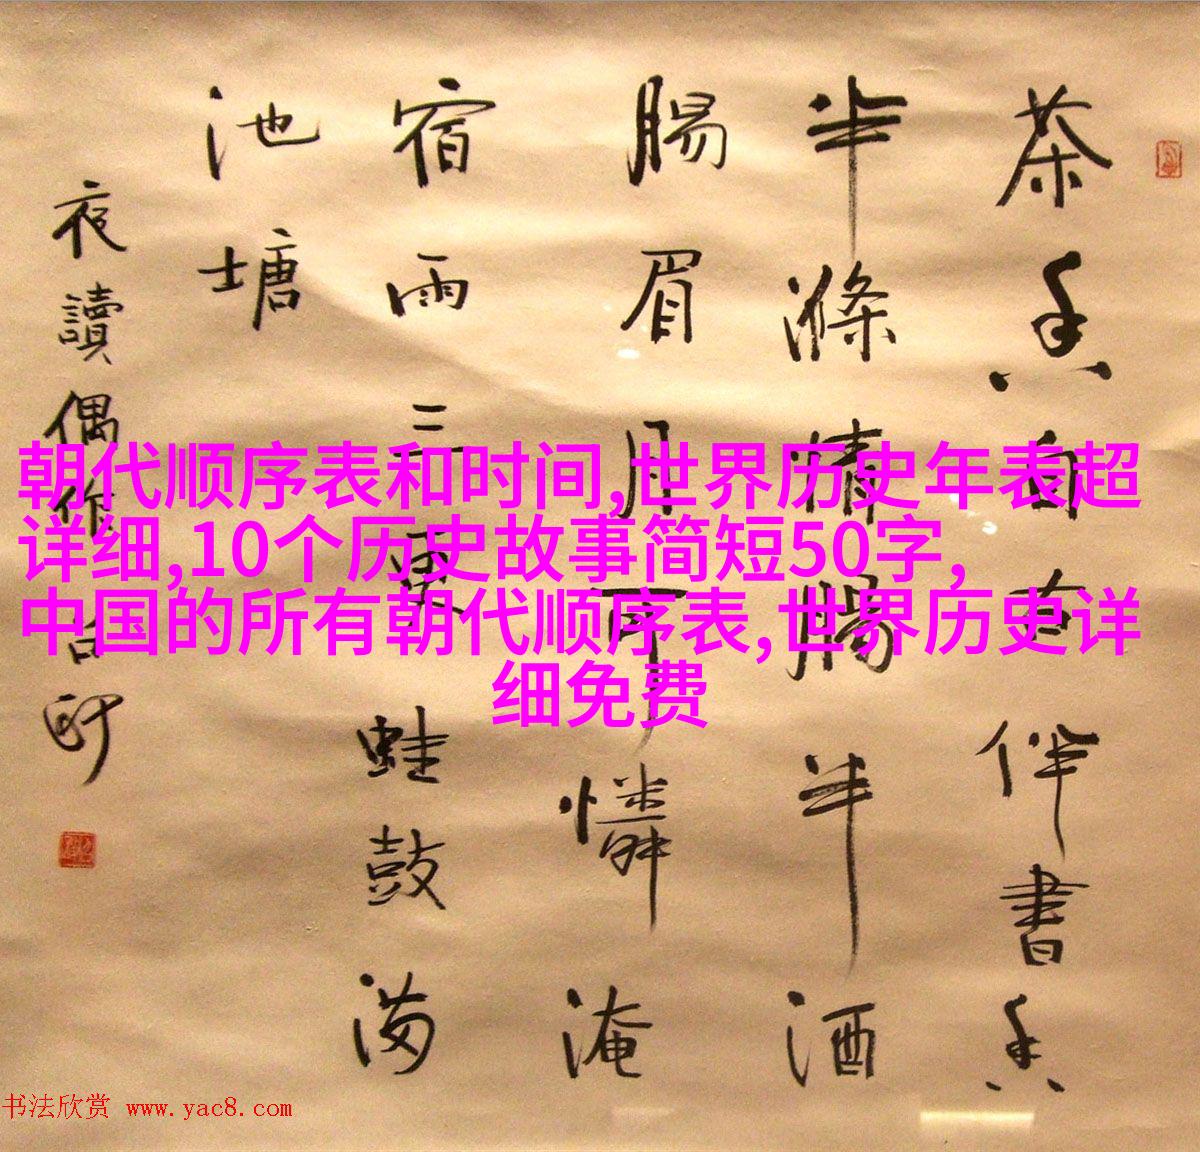 茶香自古伴書香
半滌情腸半酒
腸眉月可憐淹
宿雨三更蛙鼓满
池塘
夜讀偶作
朝代顺序表和时间,世界历史年表超
详细,10个历史故事简短50字,
中国的所有朝代顺序表,世界历史详
细免费
书法欣赏 www.yac8.com